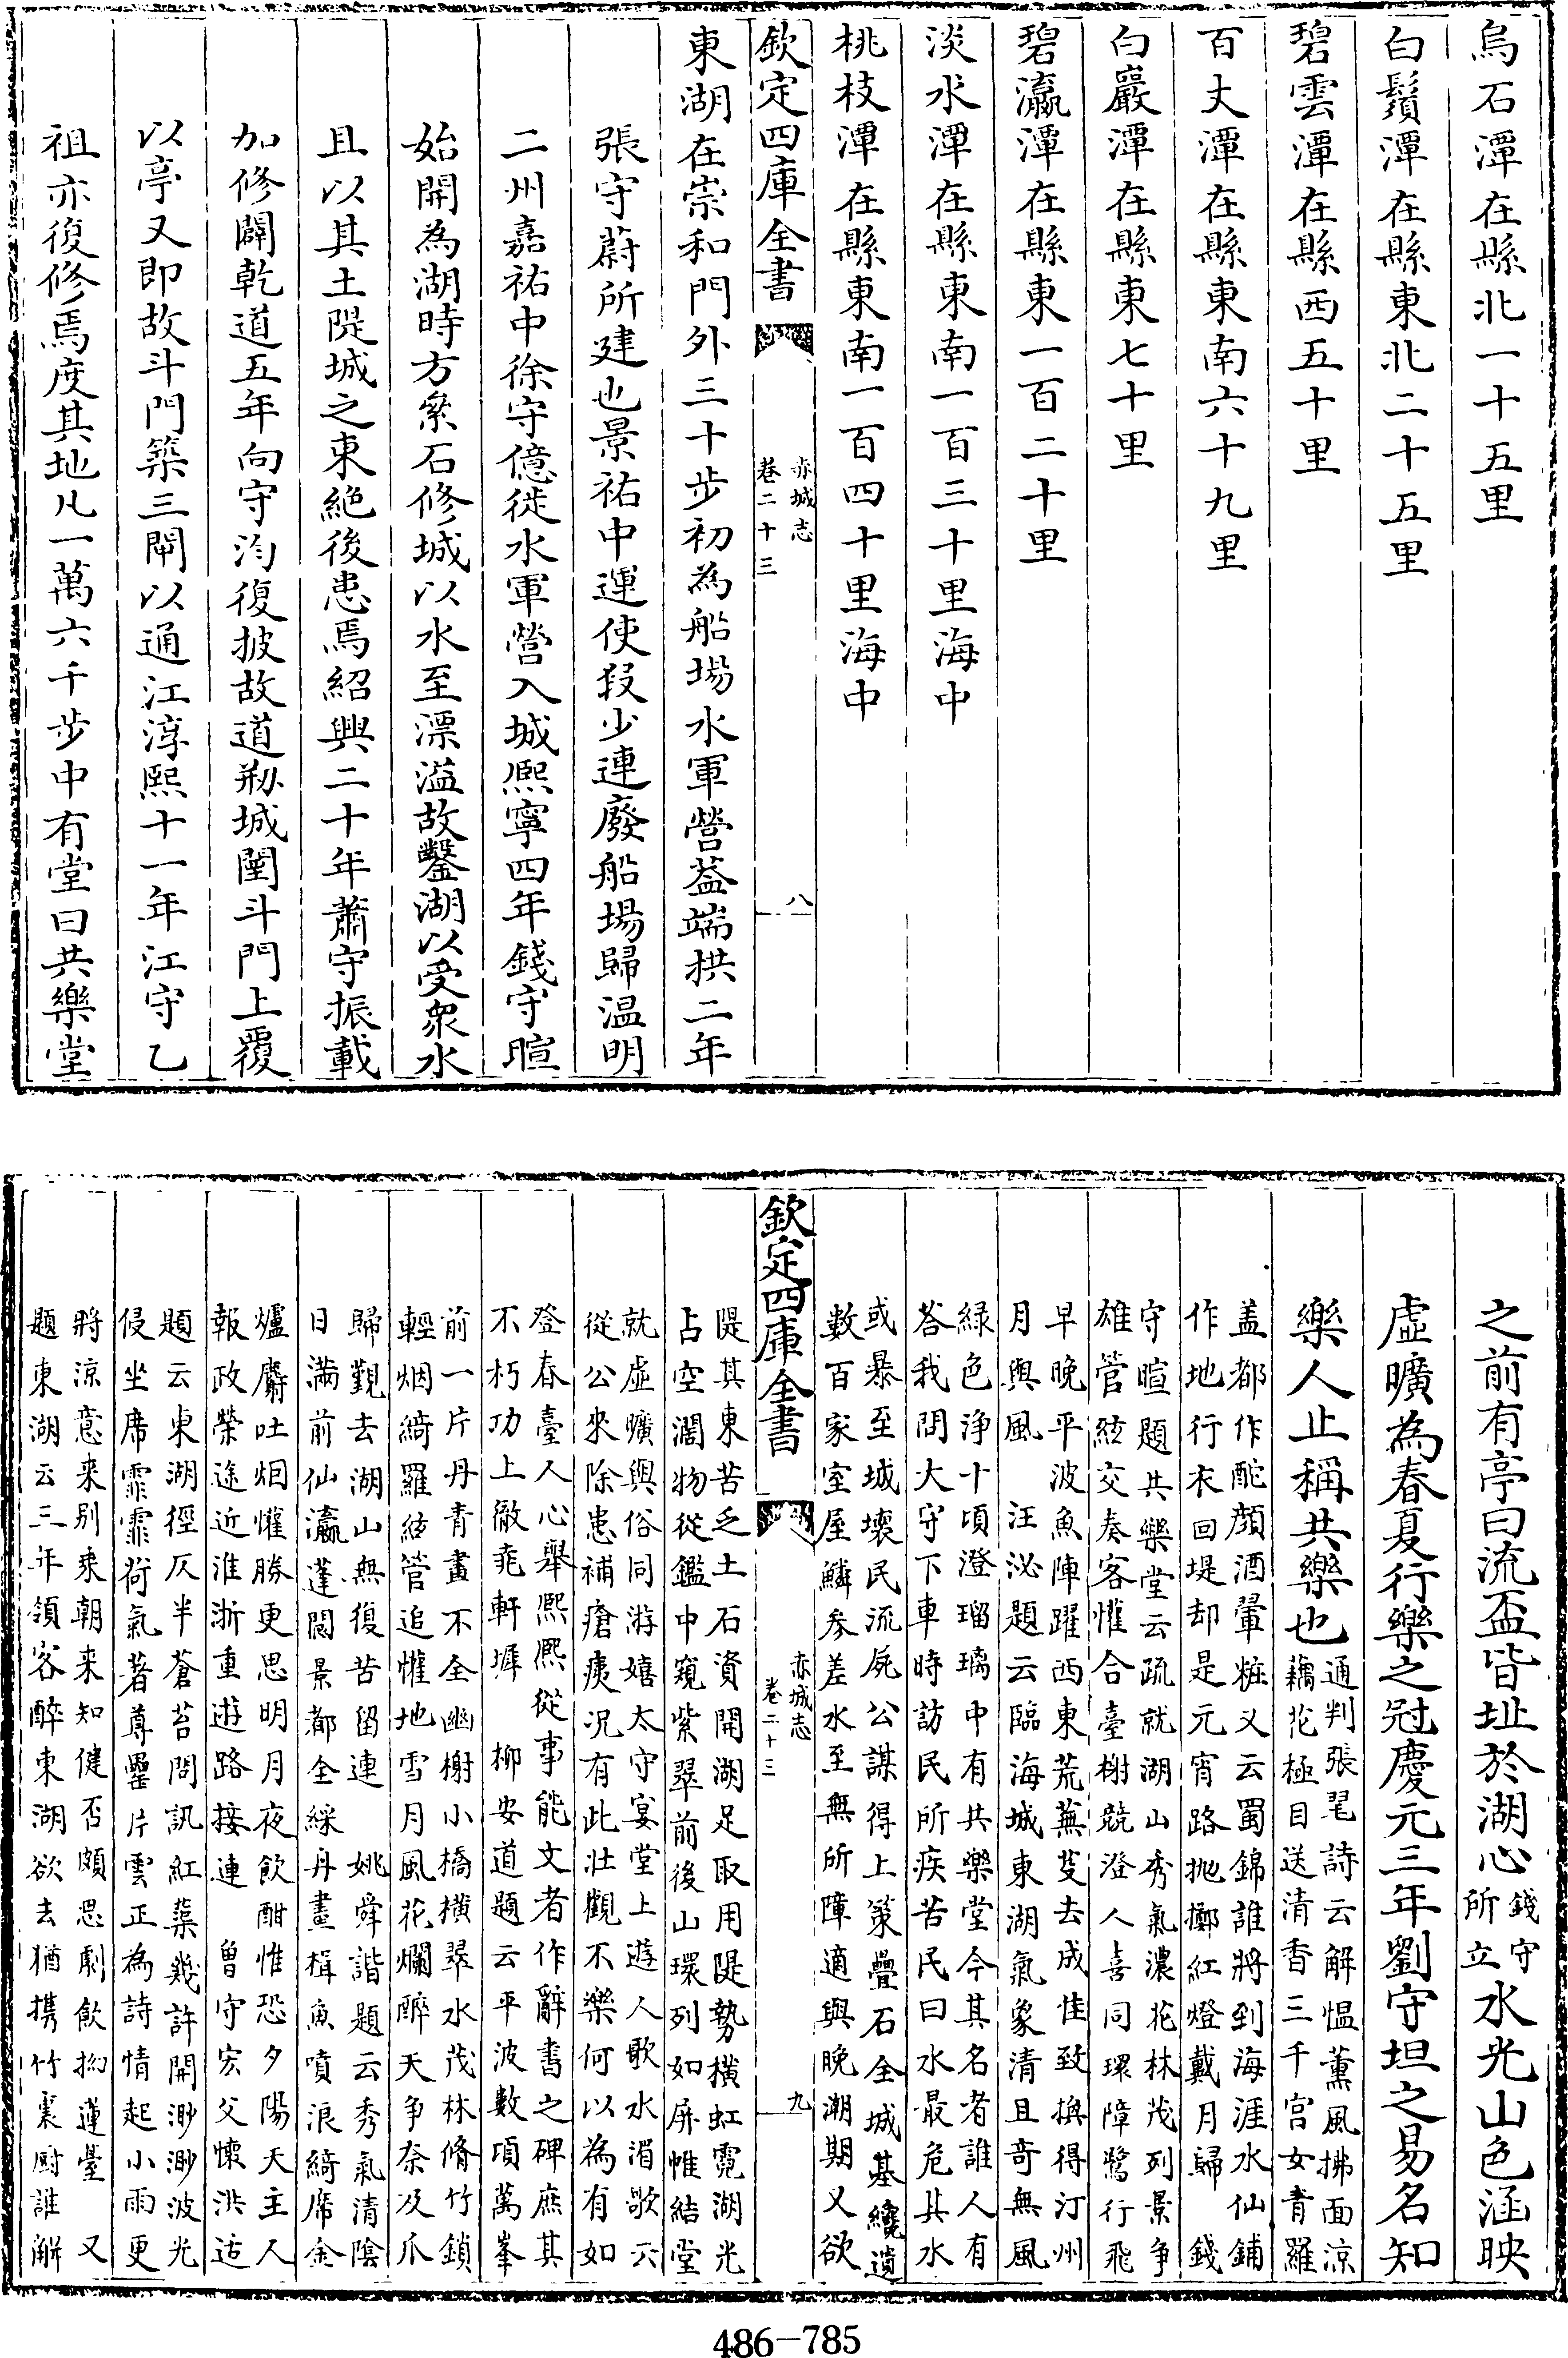 烏石潭在縣北一十五里
白鬚潭在縣東北二十五里
碧雲潭在縣西五十里
百丈潭在縣東南六十九里
白巖潭在縣東七十里
碧瀛潭在縣東一百二十里
淡水潭在縣東南一百三十里海中
桃枝潭在縣東南一百四十里海中
欽定四庫全書
赤城志
卷二十三
八
東湖在崇和門外三十步初為船場水軍營葢端拱二年
張守蔚所建也景祐中運使段少連廢船場歸温明
二州嘉祐中徐守億徙水軍營入城熈寧四年錢守暄
始開為湖時方絫石修城以水至漂溢故鑿湖以受衆水
且以其土隄城之東絶後患焉紹興二十年蕭守振載
加修闢乾道五年向守汮復披故道剏城闉斗門上覆
以亭又即故斗門築三閘以通江淳熙十一年江守乙
祖亦復修焉度其地凡一萬六千步中有堂曰共樂堂
之前有亭曰流盃皆址於湖心
錢守
所立
水光山色涵映
虚曠為春夏行樂之冠慶元三年劉守坦之易名知
樂人止稱共樂也
通判張䂮詩云解愠薫風拂面涼
藕花極目送清香三千宫女青羅
盖都作酡顔酒暈粧又云蜀錦誰將到海涯水仙鋪
作地行衣回堤却是元宵路抛擲紅燈戴月歸 錢
守暄題共樂堂云疏就湖山秀氣濃花林茂列景争
雄管絃交奏客懽合臺榭競澄人喜同環障鷺行飛
早晚平波魚陣躍西東荒蕪芟去成佳致換得汀州
月與風 汪泌題云臨海城東湖氣象清且竒無風
緑色浄十頃澄瑠璃中有共樂堂今其名者誰人有
荅我問大守下車時訪民所疾苦民曰水最危其水
或暴至城壞民流屍公謀得上策疊石全城基纔遺
數百家室屋鱗參差水至無所障適與晚潮期又欲
欽定四庫全書
赤城志
卷二十三
九
隄其東苦乏土石資開湖足取用隄勢横虹霓湖光
占空濶物從鑑中窺紫翠前後山環列如屏帷結堂
就虚曠與俗同游嬉太守宴堂上遊人歌水湄歌云
從公來除患補瘡痍况有此壯觀不樂何以為有如
登春臺人心舉熈熈從事能文者作辭書之碑庶其
不朽功上徹堯軒墀 柳安道題云平波數項萬峯
前一片丹青畫不全幽榭小橋横翠水茂林脩竹鎖
輕烟綺羅絃管追懽地雪月風花爛醉天争奈及爪
歸觀去湖山無復苦留連 姚舜諧題云秀氣清陰
日滿前仙瀛蓬閬景都全綵丹畫楫魚噴浪綺席金
爐麝吐烟懽勝更思明月夜飲酣惟恐夕陽天主人
報政榮途近淮浙重遊路接連 曾守宏父懷洪适
題云東湖徑仄半蒼苔問訊紅蕖幾許開渺渺波光
侵坐席霏霏荷氣著尊罍片雲正為詩情起小雨更
將涼意来别乘朝来知健否頗思劇飲挹蓮臺 又
題東湖云三年領客醉東湖欲去猶携竹裏厨誰解
486-785